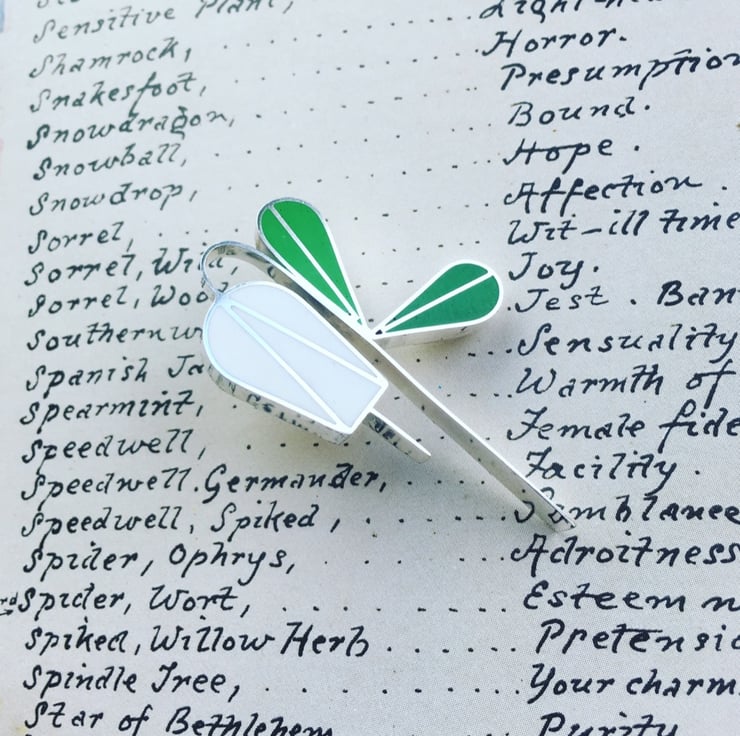 Sensitive Plant,
Shamrock, . . . . . Horror.
Snakesfoot, . . . . . Presumption
Snowdragon, . . . . . Bound.
Snowball, . . . . . Hope.
Snowdrop, . . . . . Affection.
Sorrel, . . . . . Wit-ill time
Sorrel, Wild, . . . . . Joy.
Sorrel, Woo . . . Jest. Ban
Southernw . . . Sensuality
Spanish Ja . . . Warmth of
Spearmint, . . . Female fide
Speedwell, . . . . . Facility.
Speedwell. Germander, . . . . .
Speedwell, Spiked, . . . . . Adroitness
Spider, Ophrys, . . . . .
Spider, Wort, . . . . . Esteem n
Spiked, Willow Herb . . . . . Pretensio
Spindle Tree, . . . . . Your charm
Star of Bethlehem Purity